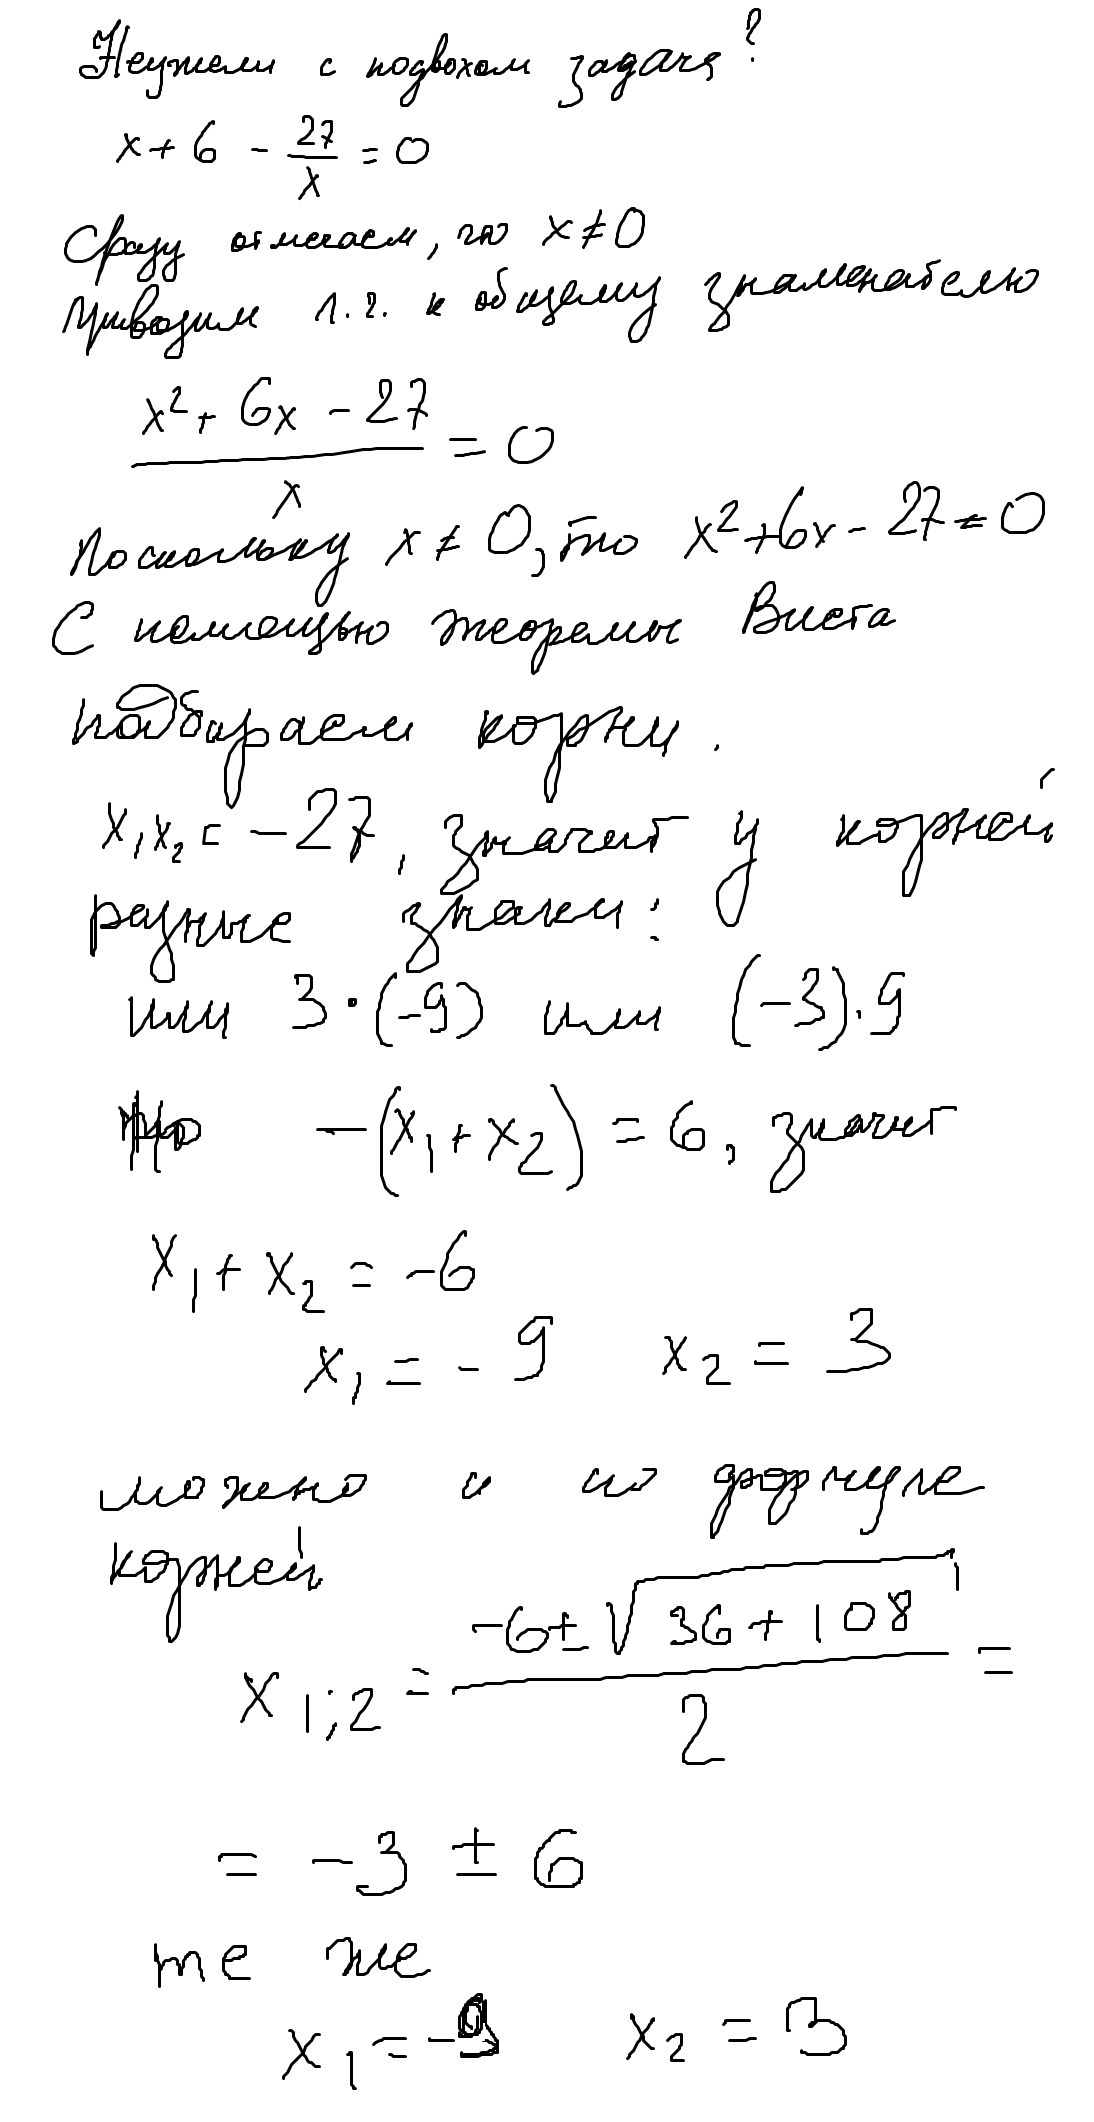 Неужели с подвохом задача?
x + 6 - 27/x = 0
Сразу отмечаем, что x ≠ 0
Приводим л.ч. к общему знаменателю
(x² + 6x - 27)/x = 0
Поскольку x ≠ 0, то x² + 6x - 27 = 0
С помощью теоремы Виета
подбираем корни.
x₁x₂ = -27, значит у корней
разные знаки:
или 3·(-9) или (-3)·9
-(x₁ + x₂) = 6, значит
x₁ + x₂ = -6
x₁ = -9 x₂ = 3
можно и по формуле
корней
x₁;₂ = (-6±√(36+108))/2 =
= -3 ± 6
те же
x₁ = -9 x₂ = 3